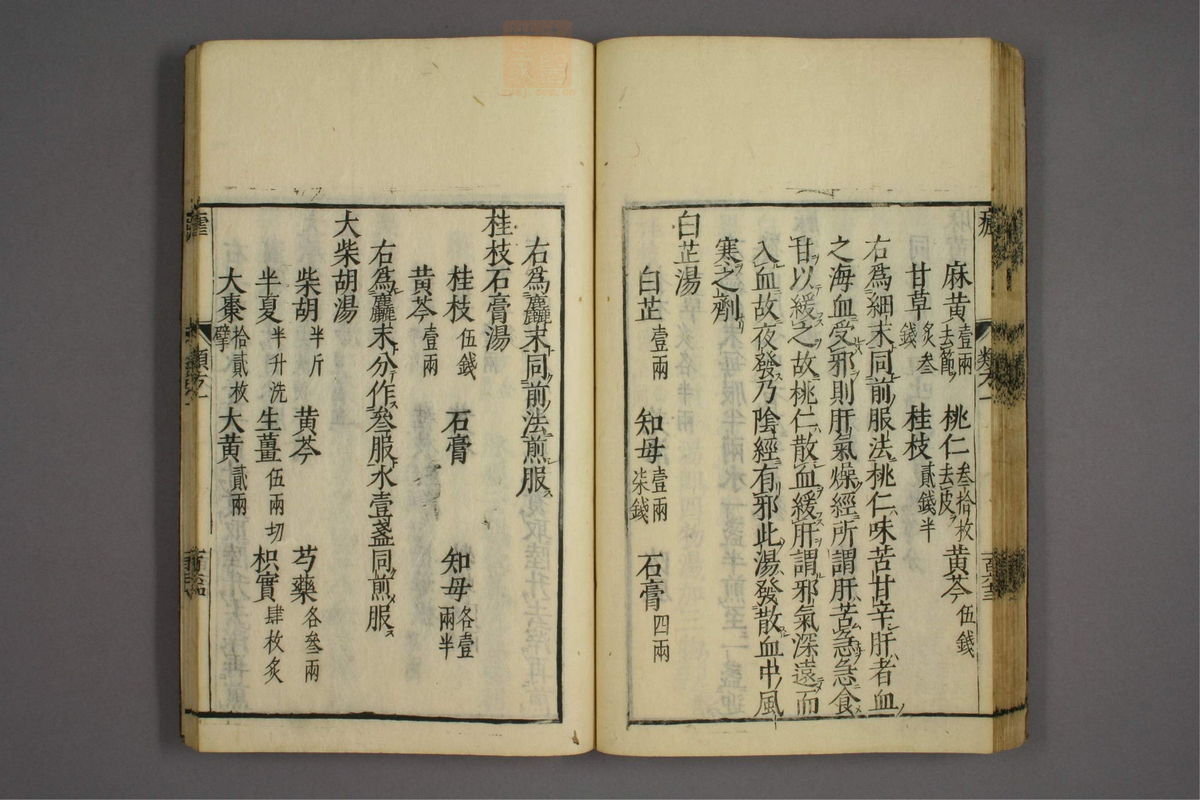 麻黄壹兩去節 桃仁叁拾枚去皮 黄芩伍錢
甘草炙叁錢 桂枝貳錢半
右爲細末同前服法桃仁味苦甘辛肝者血
之海血受邪則肝氣燥經所謂肝苦急急食
甘以緩之故桃仁散血緩肝謂邪氣深遠而
入血故夜發乃陰經有邪此湯發散血中風
寒之劑
白芷湯
白芷壹兩 知母壹兩柒錢 石膏四兩
右爲麤末同前法煎服
桂枝石膏湯
桂枝伍錢 石膏 知母各壹兩半
黄芩壹兩
右爲麤末分作叁服水壹盞同煎服
大柴胡湯
柴胡半斤 黄芩 芍藥各叁兩
半夏半升洗 生薑伍兩切 枳實肆枚炙
大棗拾貳枚擘 大黄貳兩